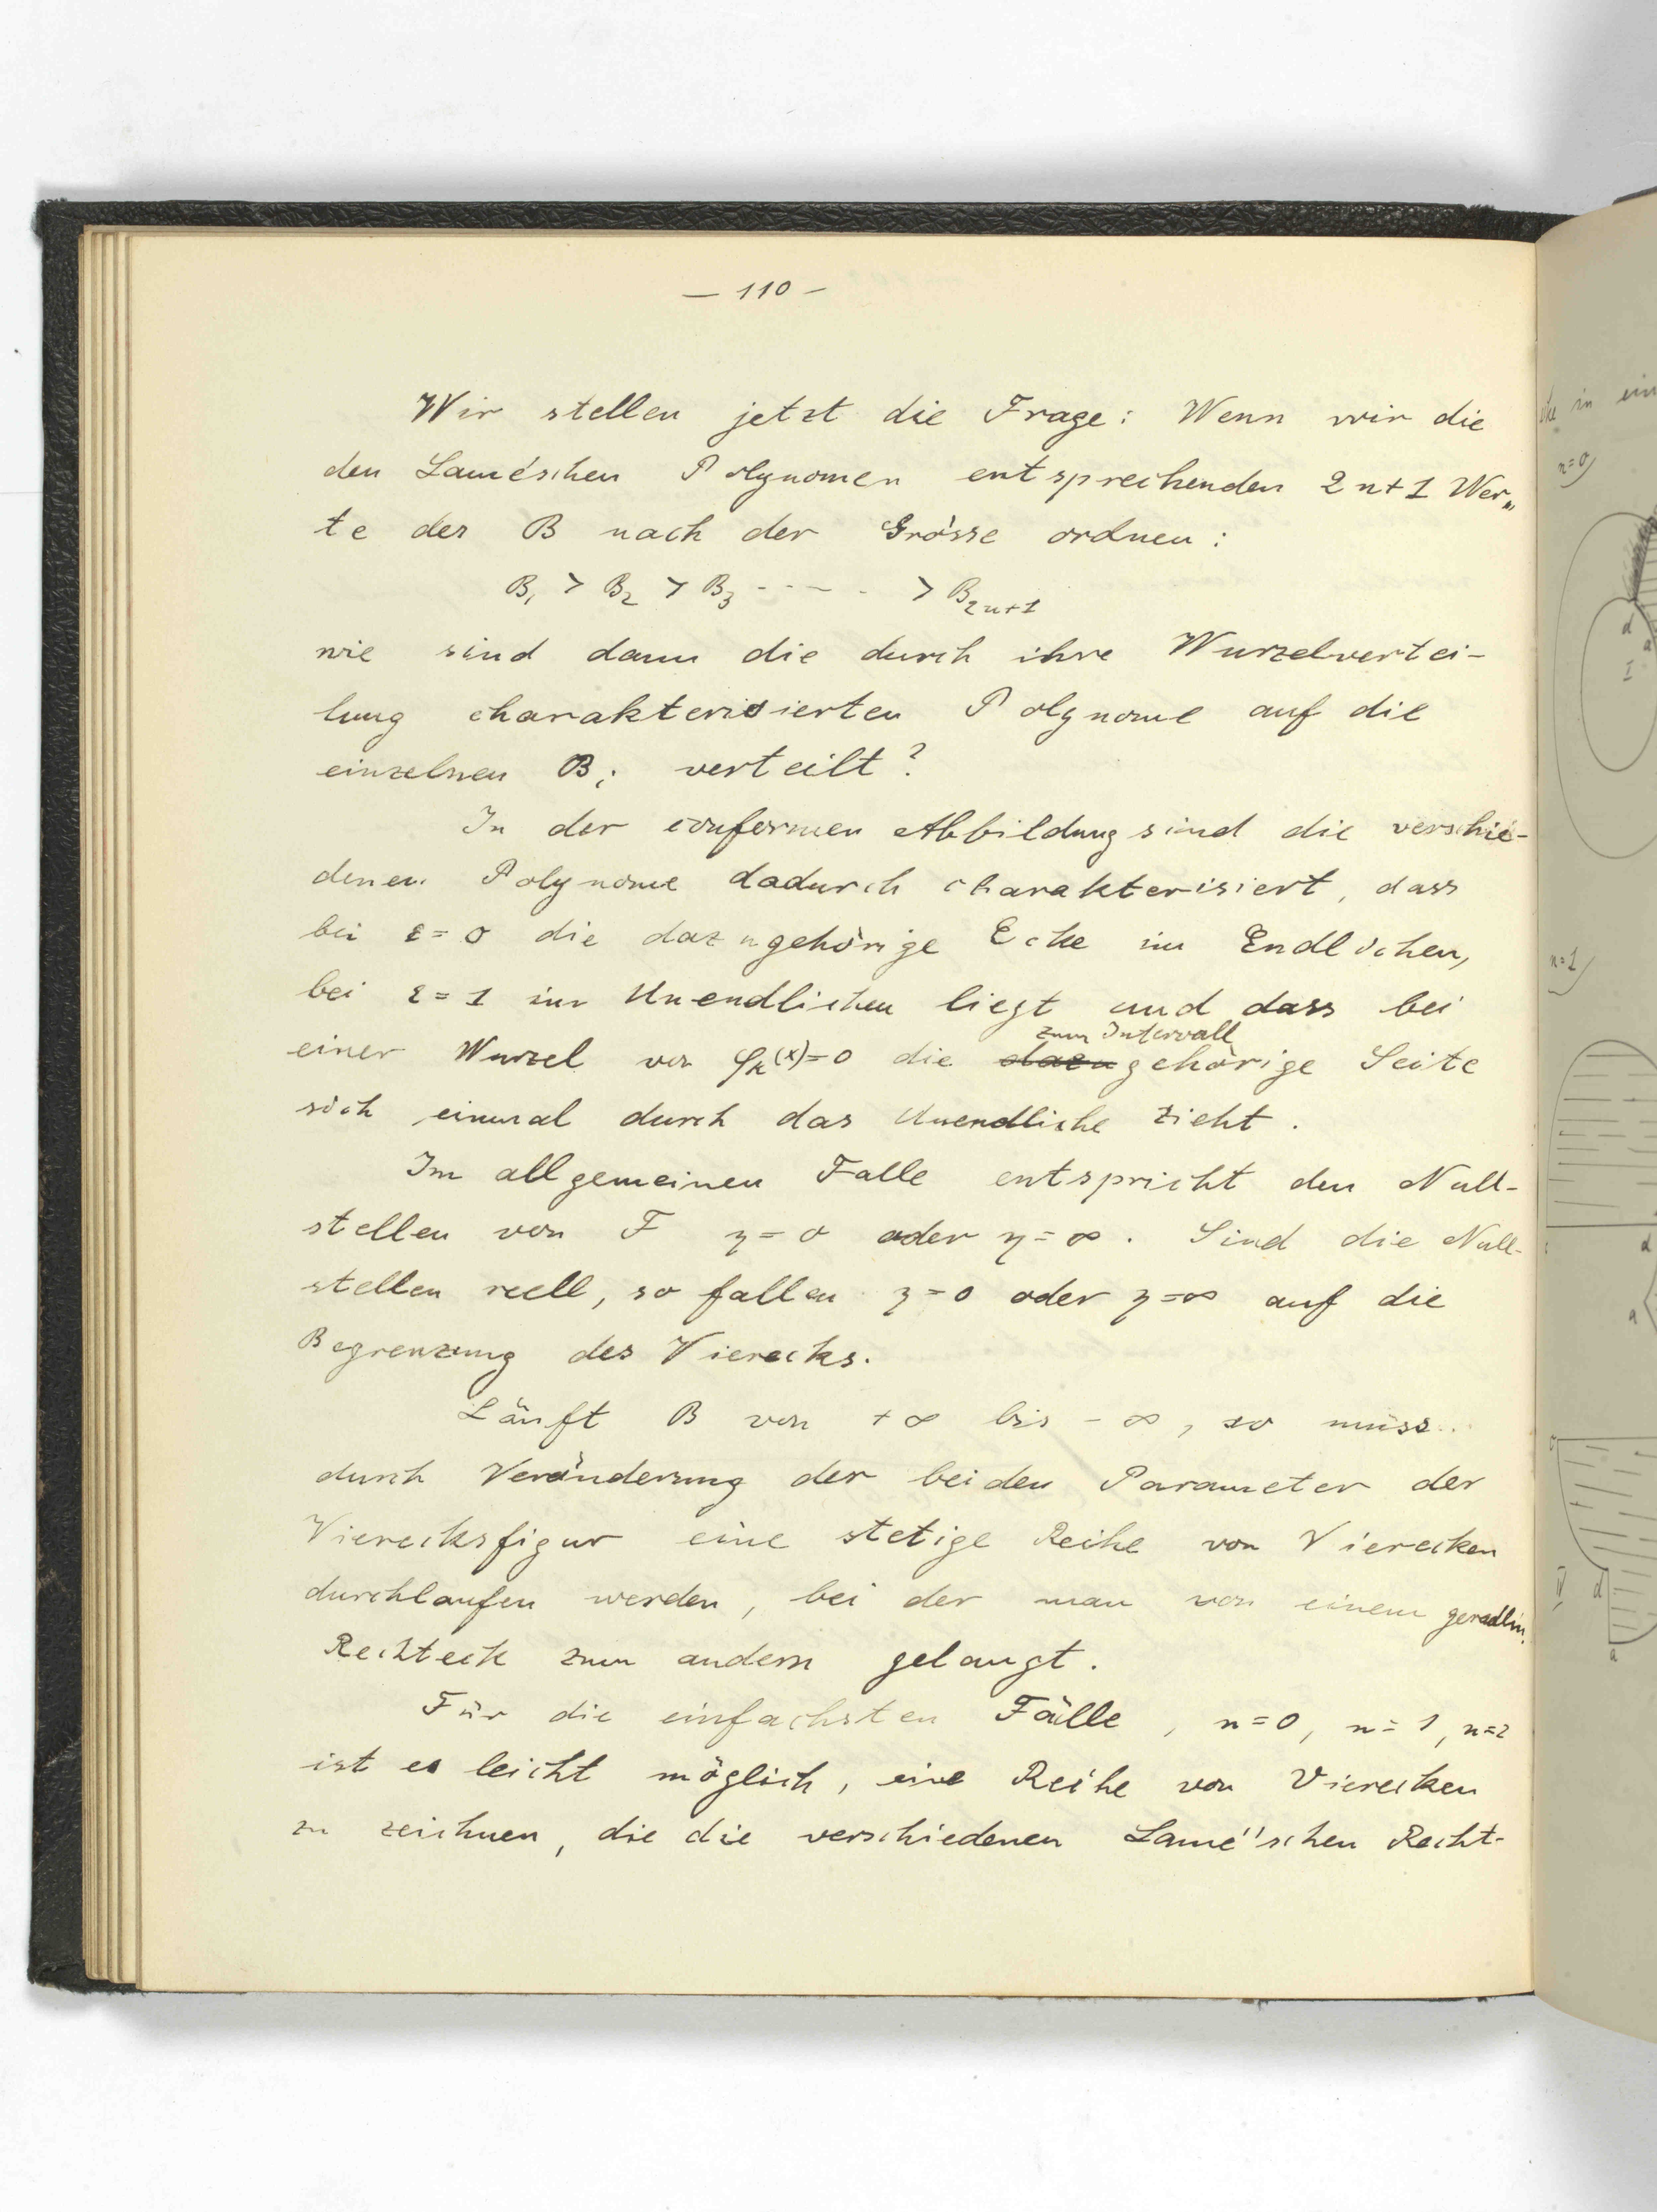 — 110 —
Wir stellen jetzt die Frage: Wenn wir die
den Lamé'schen Polynomen entsprechenden 2n+1 Wer„
te der B nach der Grösse ordnen:
B₁ > B₂ > B₃ - - - - . > B₂ₙ₊₁
wie sind dann die durch ihre Wurzelvertei-
lung charakterisierten Polynome auf die
einzelnen Bᵢ verteilt?
In der conformen Abbildung sind die verschie-
denen Polynome dadurch charakterisiert, dass
bei ε=0 die dazugehörige Ecke im Endlichen,
bei ε=1 im Unendlichen liegt und dass bei
zum Intervall
einer Wurzel von φₖ(x)=0 die dazu gehörige Seite
sich einmal durch das Unendliche zieht.
Im allgemeinen Falle entspricht den Null-
stellen von F η=0 oder η=∞. Sind die Null-
stellen reell, so fallen η=0 oder η=∞ auf die
Begrenzung des Vierecks.
Läuft B von +∞ bis -∞, so muss
durch Veränderung der beiden Parameter der
Vierecksfigur eine stetige Reihe von Vierecken
durchlaufen werden, bei der man von einem geradlin.
Rechteck zum andern gelangt.
Für die einfachsten Fälle, n=0, n=1, n=2
ist es leicht möglich, eine Reihe von Vierecken
zu zeichnen, die die verschiedenen Lamé'schen Recht-
in ein
n=0)
d
a
I
n=1)
d
a
V
d
a